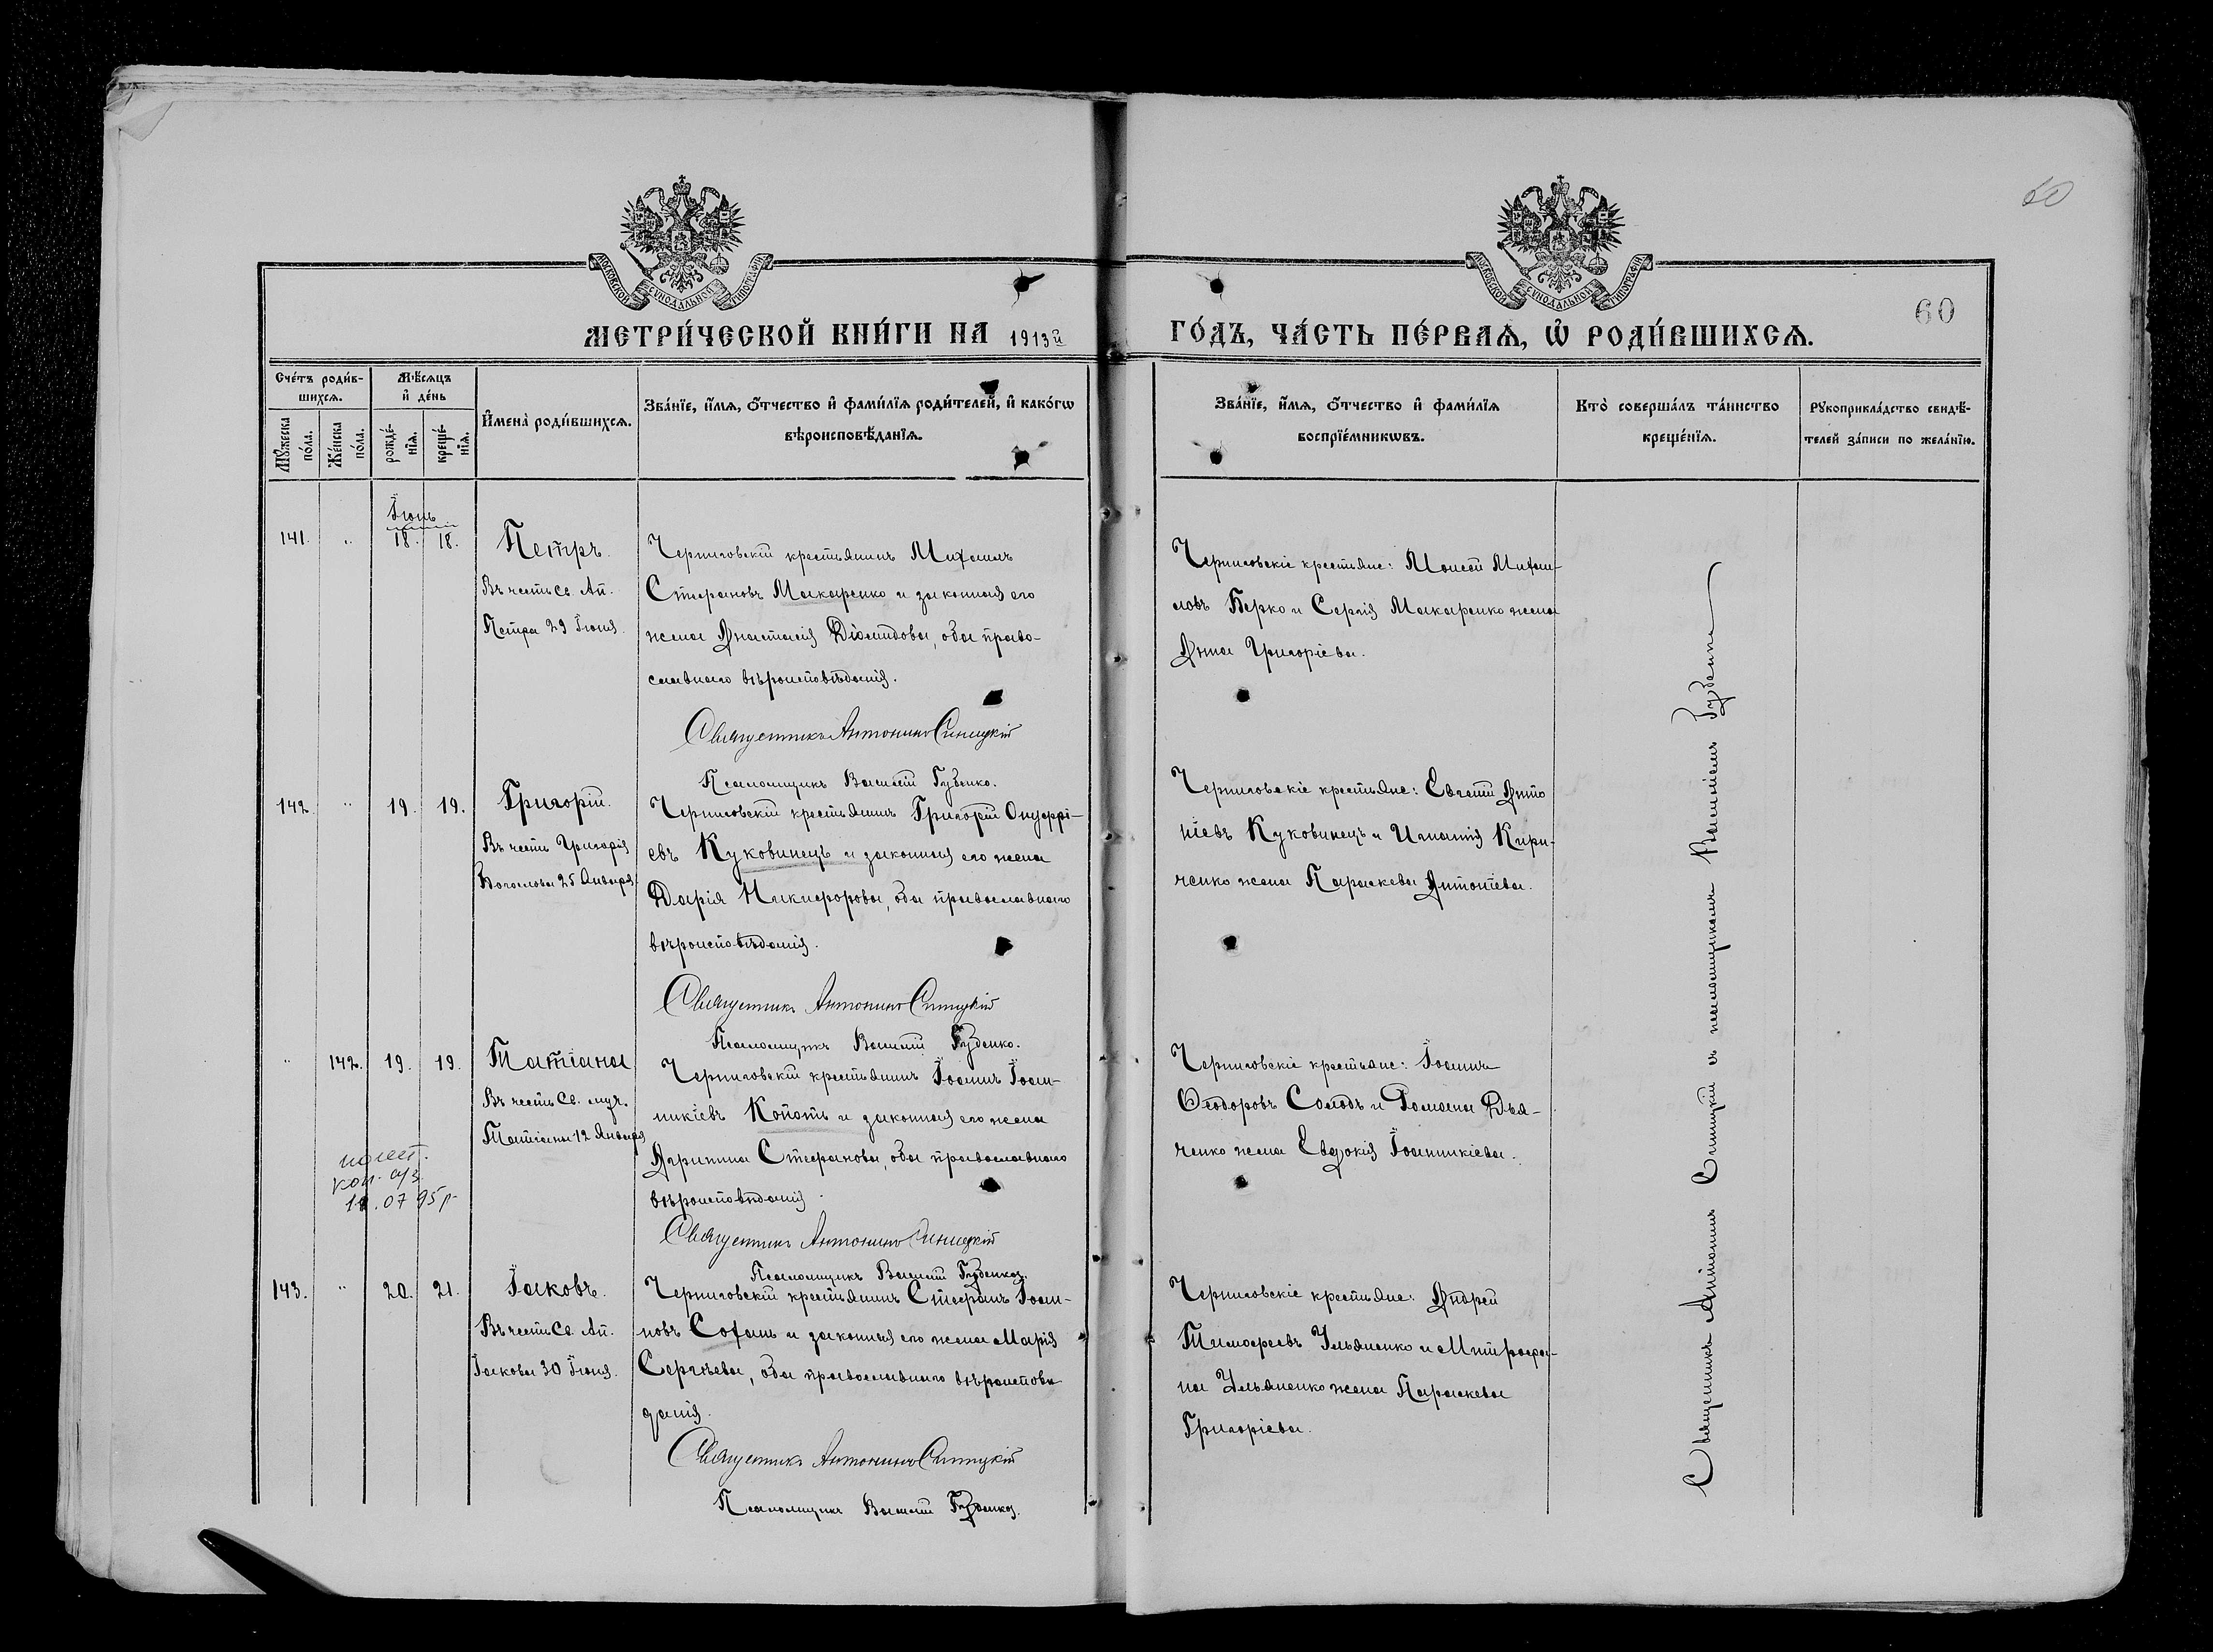 60
МОСКОВСКОЙ СѴНОДАЛЬНОЙ ТИПОГРАФІИ
МОСКОВСКОЙ СѴНОДАЛЬНОЙ ТИПОГРАФІИ
60
МЕТРИ́ЧЕСКОЙ КНИ́ГИ НА 1913й ГО́ДЪ, ЧА́СТЬ ПЕ́РВАѦ, Ѡ҆ РОДИ́ВШИХСѦ.
Сче́тъ роди́в-
шихсѧ.
Мꙋ́жеска по́ла.
Же́нска по́ла.
Мѣ́сѧцъ
и҆ де́нь
рожде́-нїѧ.
креще́-нїѧ.
И҆мена̀ роди́вшихсѧ.
Зва́нїе, и҆́мѧ, ѻ҆́тчество и҆ фами́лїѧ роди́телей, и҆ како́гѡ
вѣроисповѣ́данїѧ.
Зва́нїе, и҆́мѧ, ѻ҆́тчество и҆ фами́лїѧ
воспрїе́мникѡвъ.
Кто̀ соверша́лъ та́инство
креще́нїѧ.
Рꙋкоприкла́дство свидѣ́-
телей за́писи по жела́нїю.
Іюнь
141. " 18. 18.
Петръ.
Въ честь Св. Ап.
Петра 29 Іюня.
Черниговскій крестьянинъ Михаилъ
Стефановъ Макаренко и законная его
жена Анастасія Діомидова, оба право-
славнаго вѣроисповѣданія.
Священникъ Антонинъ Синицкій
Псаломщикъ Василій Губенко.
Черниговскіе крестьяне: Моисей Михаи-
ловъ Берко и Сергія Макаренко жена
Анна Григоріева.
142. " 19. 19.
Григорій.
Въ честь Григорія
Богослова 25 Января
Черниговскій крестьянинъ Григорій Онуфрі-
евъ Куковинецъ и законная его жена
Дарія Никифорова, оба православнаго
вѣроисповѣданія.
Священникъ Антонинъ Синицкій
Псаломщикъ Василій Губенко.
Черниговскіе крестьяне: Евгеній Анто
ніевъ Куковинецъ и Игнатія Кири-
ченко жена Параскева Антоніева.
" 142. 19. 19.
Татіана
Въ честь Св. муч.
Татіаны 12 Января
07 95 р
Черниговскій крестьянинъ Іоаннъ Іоан-
никіевъ Копоть и законная его жена
Агрипина Стефанова, оба православнаго
вѣроисповѣданія.
Священникъ Антонинъ Синицкій
Псаломщикъ Василій Губенко.
Черниговскіе крестьяне: Іоаннъ
Ѳеодоровъ Солодъ и Романа Дья-
ченко жена Евдокія Іоанникіева.
143. " 20. 21.
Іаковъ.
Въ честь Св. Ап.
Іакова 30 Іюня.
Черниговскій крестьянинъ Стефанъ Іоан-
новъ Сохань и законная его жена Марія
Сергіева, оба православнаго вѣроисповѣ
данія.
Священникъ Антонинъ Синицкій
Псаломщикъ Василій Губенко.
Черниговскіе крестьяне: Андрей
Тимофеевъ Ульяненко и Митрофа-
на Ульяненко жена Параскева
Григоріева.
Священникъ Антонинъ Синицкій съ псаломщикомъ Василіемъ Губенко